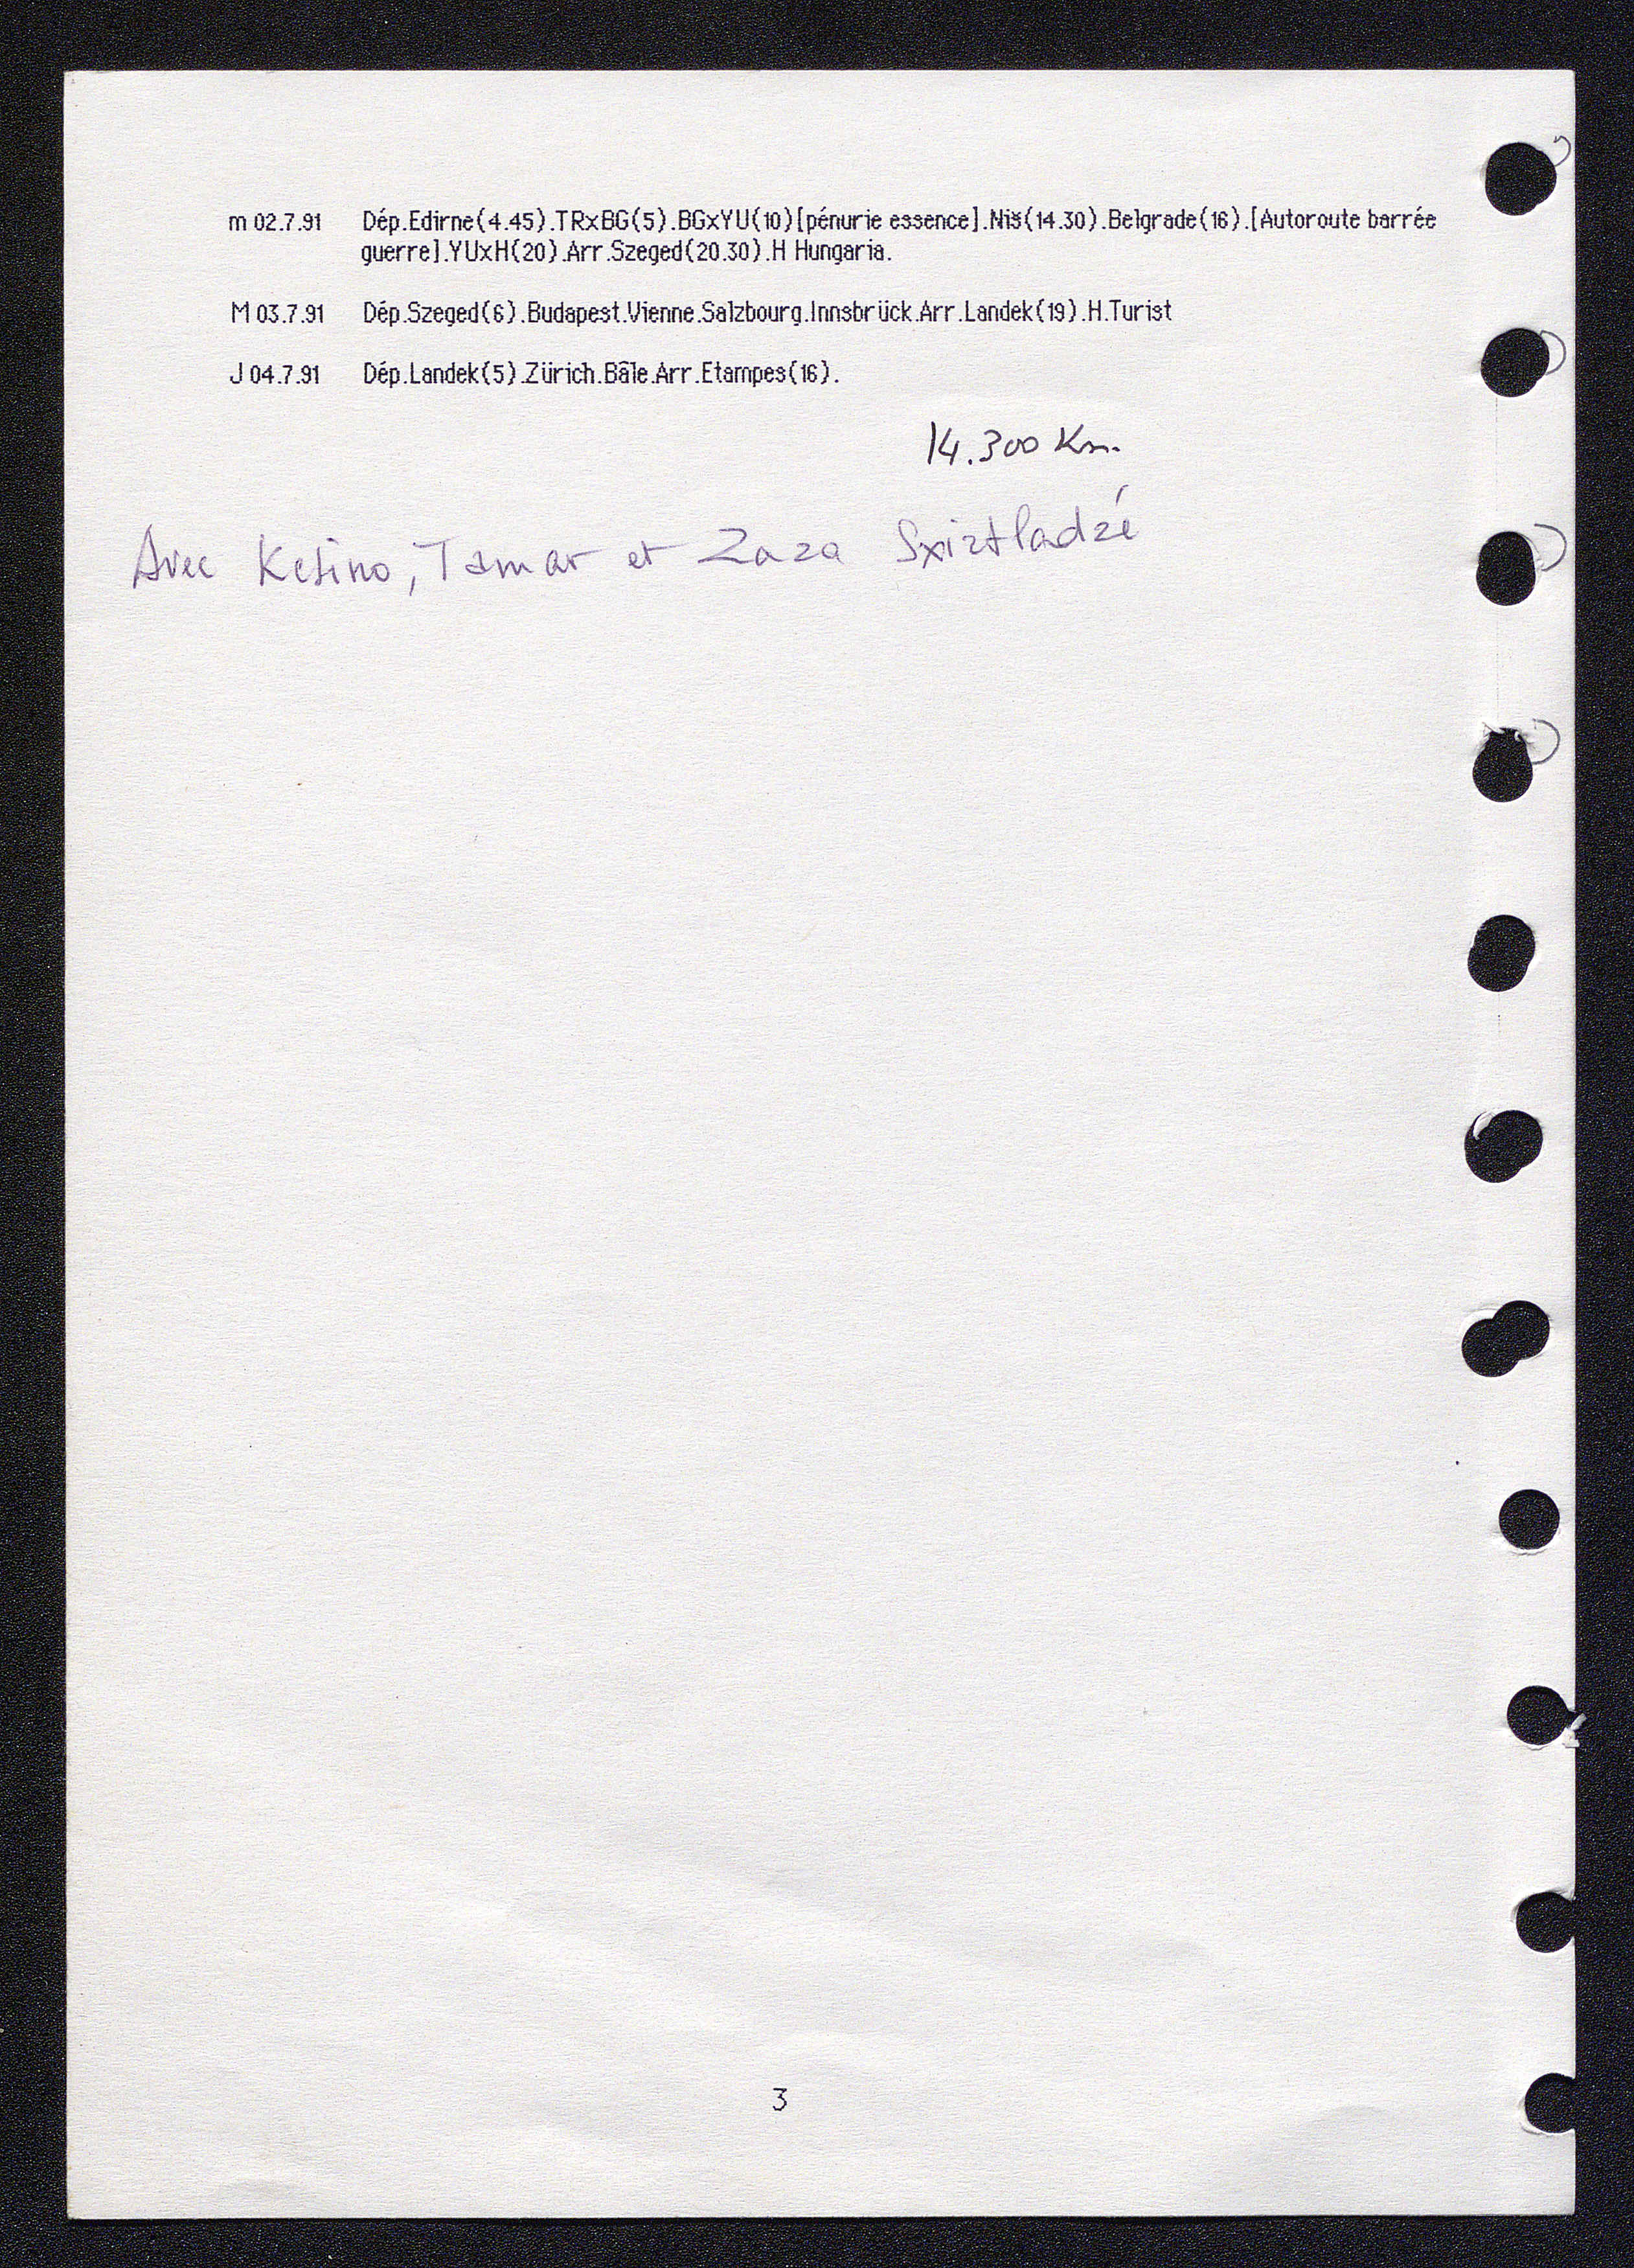 m 02.7.91 Dép.Edirne(4.45).TRxBG(5).BGxYU(10)[pénurie essence].Niš(14.30).Belgrade(16).[Autoroute barrée
guerre].YUxH(20).Arr.Szeged(20.30).H Hungaria.
M 03.7.91 Dép.Szeged(6).Budapest.Vienne.Salzbourg.Innsbrück.Arr.Landek(19).H.Turist
J 04.7.91 Dép.Landek(5).Zürich.Bâle.Arr.Etampes(16).
14.300 Km.
Avec Ketino, Tamar et Zaza Sxirtladzé
3